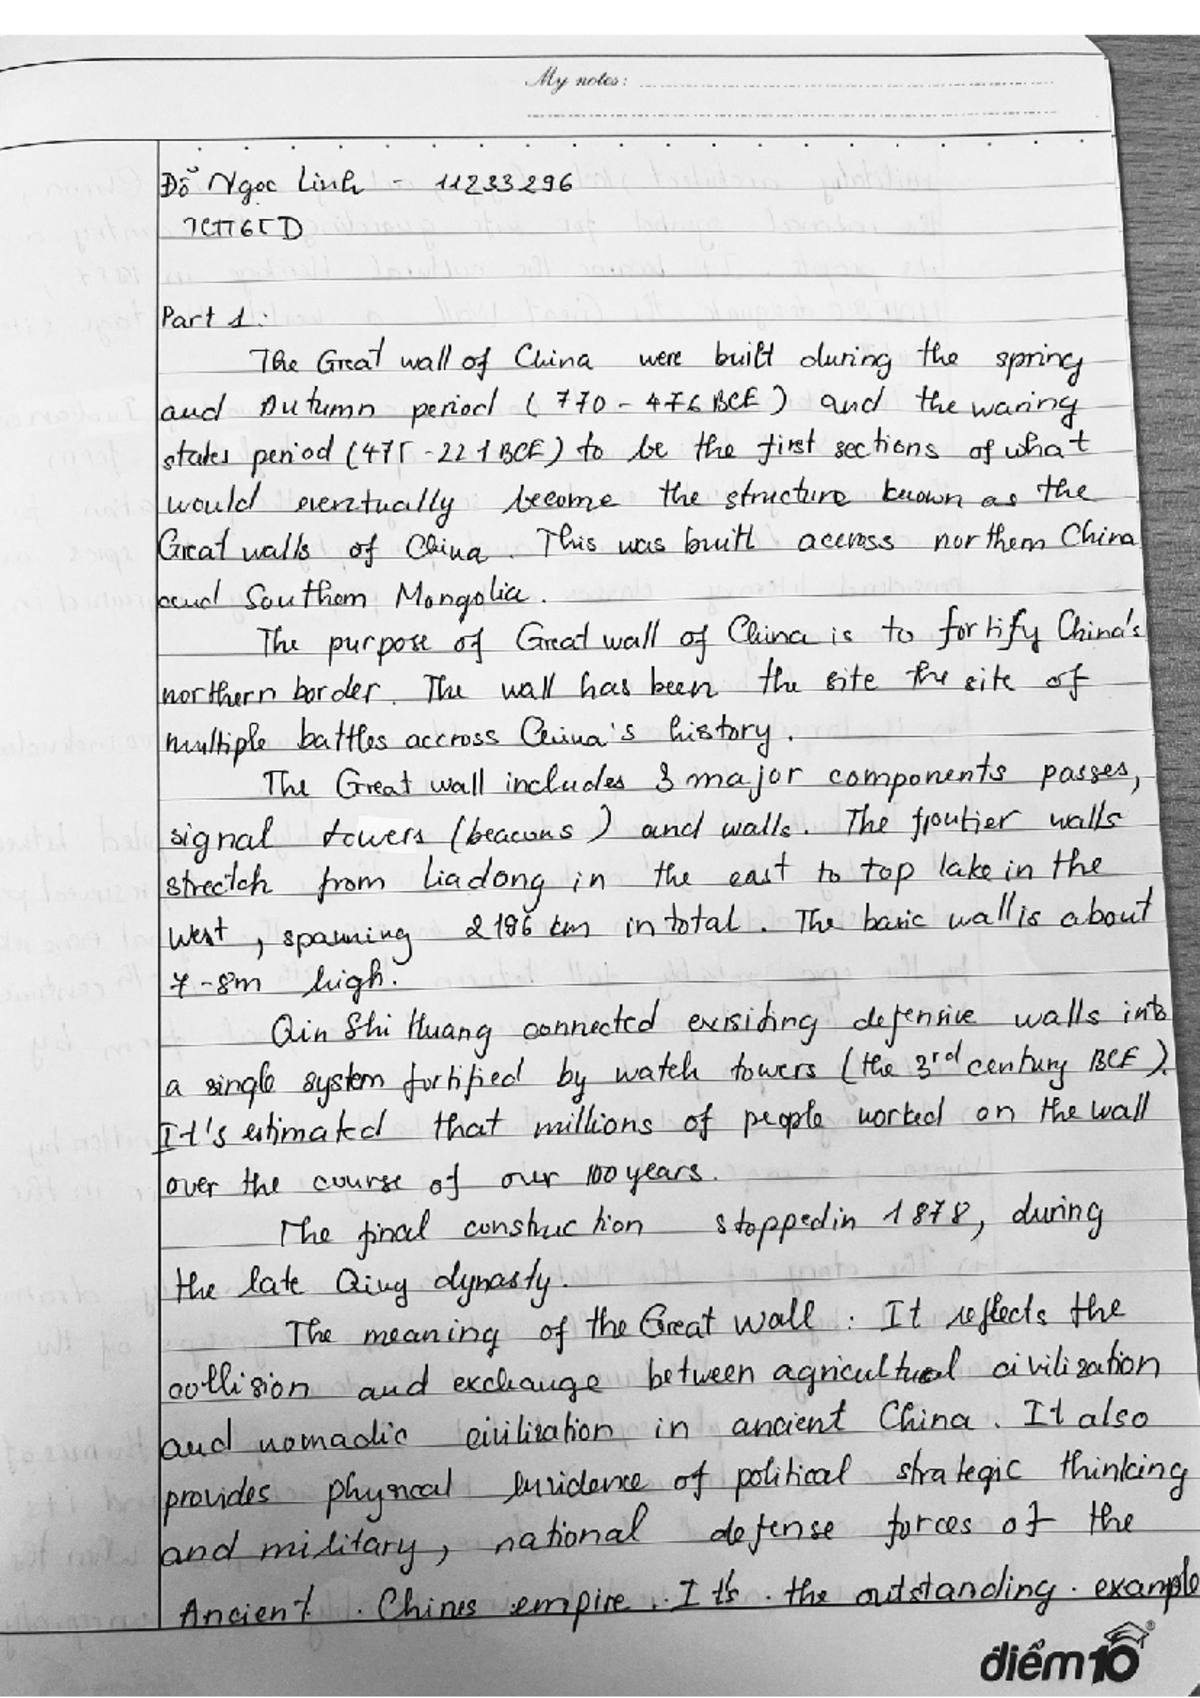 My notes:
Đỗ Ngọc Linh - 11233296
Part 1:
The Great wall of China were built during the spring
and Autumn period (770-476 BCE) and the waring
states period (475-221 BCE) to be the first sections of what
would eventually become the structure known as the
Great walls of China. This was built accross northern China
and Southern Mongolia.
The purpose of Great wall of China is to fortify China's
northern border. The wall has been the site the site of
multiple battles accross China's history.
The Great wall includes 3 major components passes,
signal towers (beacons) and walls. The frontier walls
strectch from Liadong in the east to top lake in the
West, spanning 2196 km in total. The basic wall is about
7-8m high.
Qin Shi Huang connected exisiting defensive walls into
a single system fortified by watch towers (the 3rd century BCE).
It's estimated that millions of people worked on the wall
over the course of over 100 years.
The final construction stopped in 1878, during
the late Qing dynasty.
The meaning of the Great wall: It reflects the
collision and exchange between agricultual civilization
and nomadic civilization in ancient China. It also
provides physical evidence of political strategic thinking
and military, national defense forces of the
Ancient. Chines empire. It's. the outstanding. example
điểm10